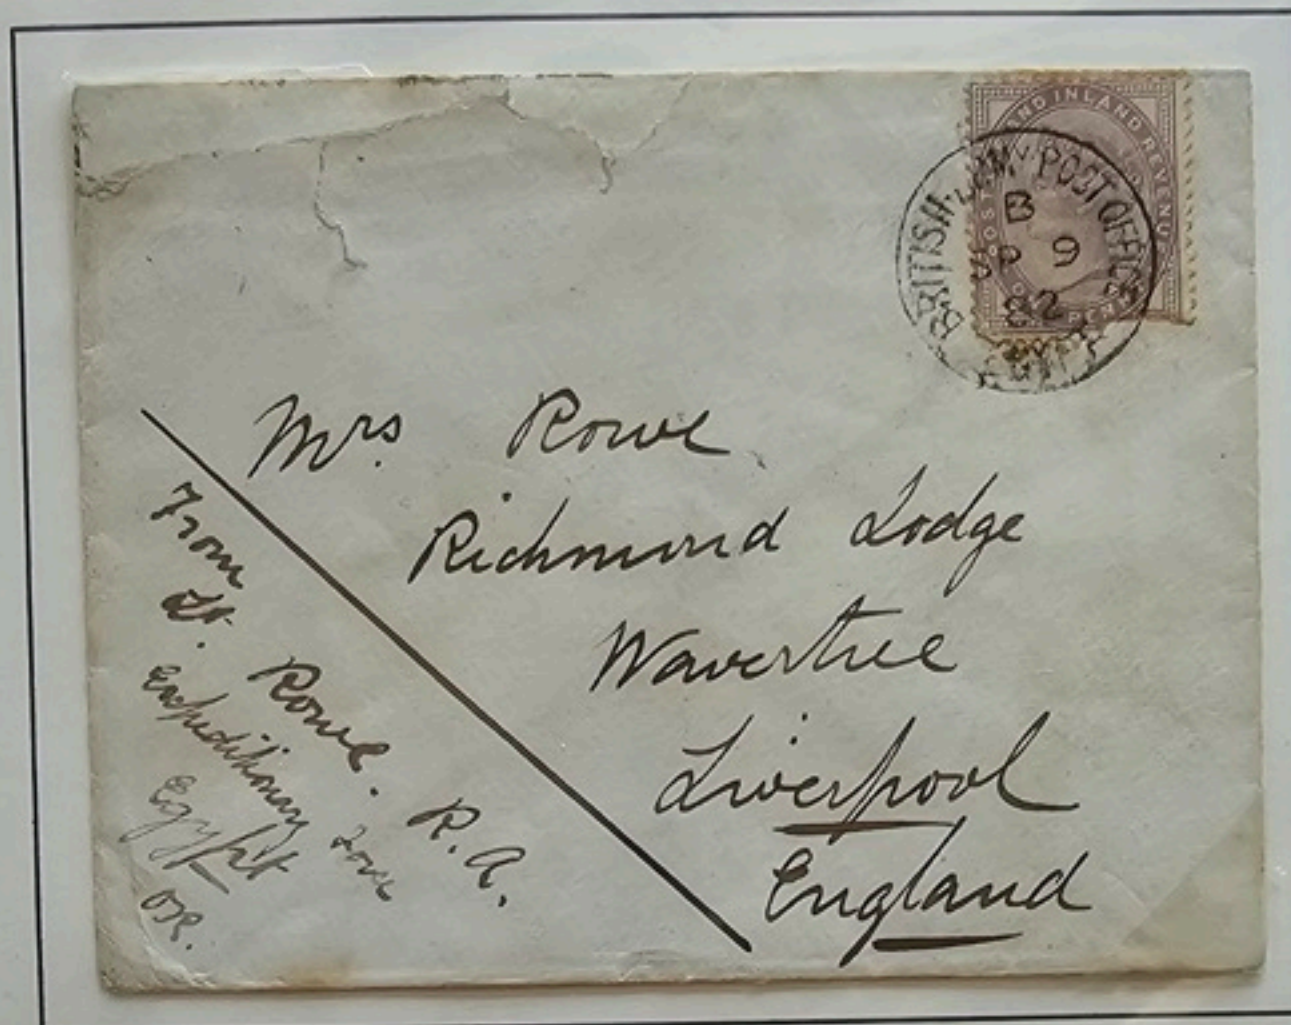 POSTAGE AND INLAND REVENUE
ONE PENNY
BRITISH ARMY POST OFFICE
B
SP 9
82
EGYPT
Mrs Rowe
Richmond Lodge
Wavertree
Liverpool
England
From
Lt. Rowe. R.A.
Expeditionary Force
Egypt